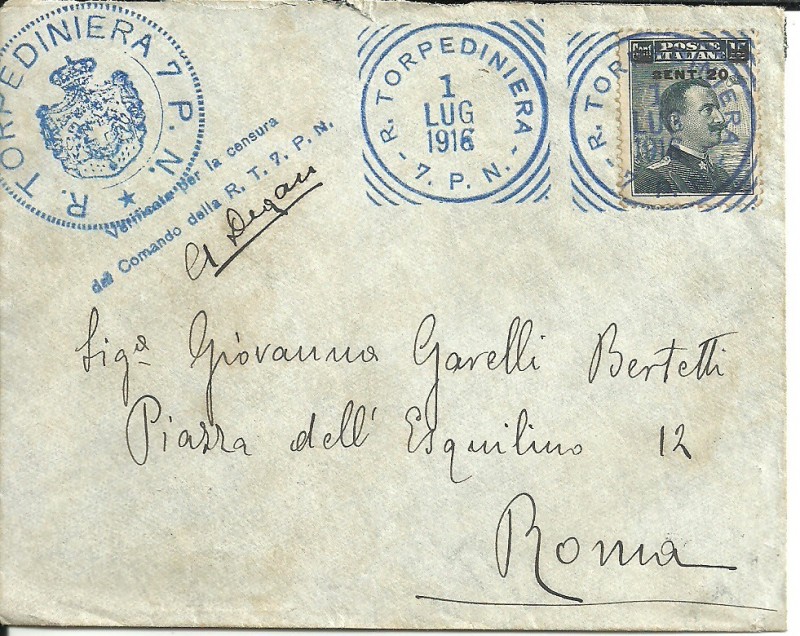 R. TORPEDINIERA 7 P. N.
R. TORPEDINIERA
1
LUG
1916
- 7. P. N. -
R. TORPEDINIERA
1
LUG
1916
7. P.
POSTE
ITALIANE
15
CENT. 20
Verificato per la censura
dal Comando della R. T. 7. P. N.
Degan
Sigª Giovanna Garelli Bertetti
Piazza dell' Esquilino 12
Roma